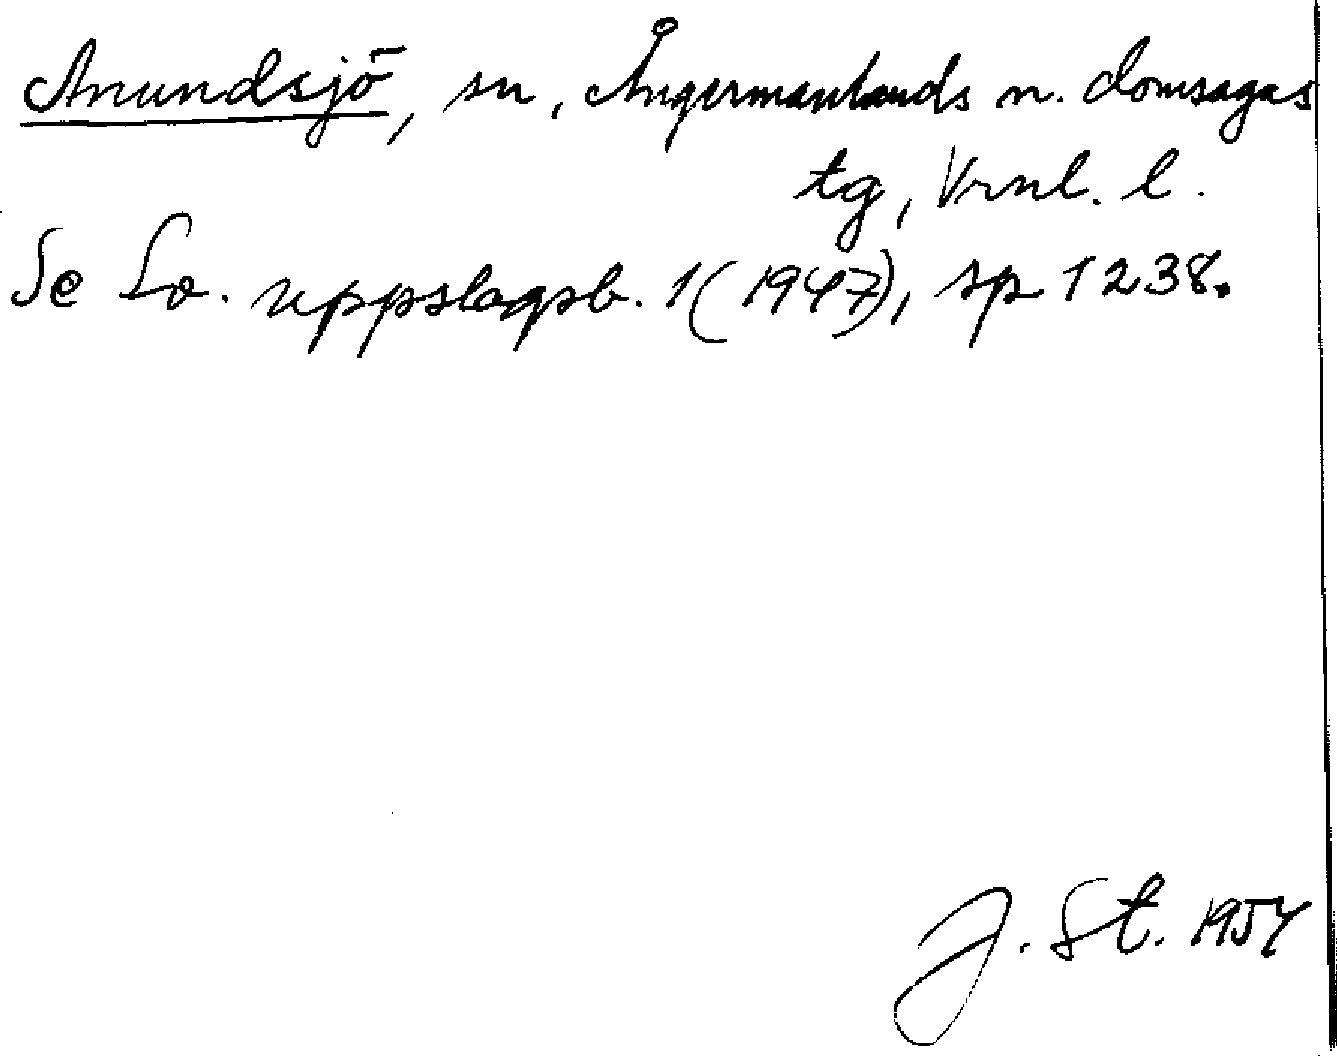 Anundsjö, sn, Ångermanlands n. domsagas
tg, Vrnl. l.
Se Sv. uppslagsb. 1 (1947), sp 1238.
J. St. 1954